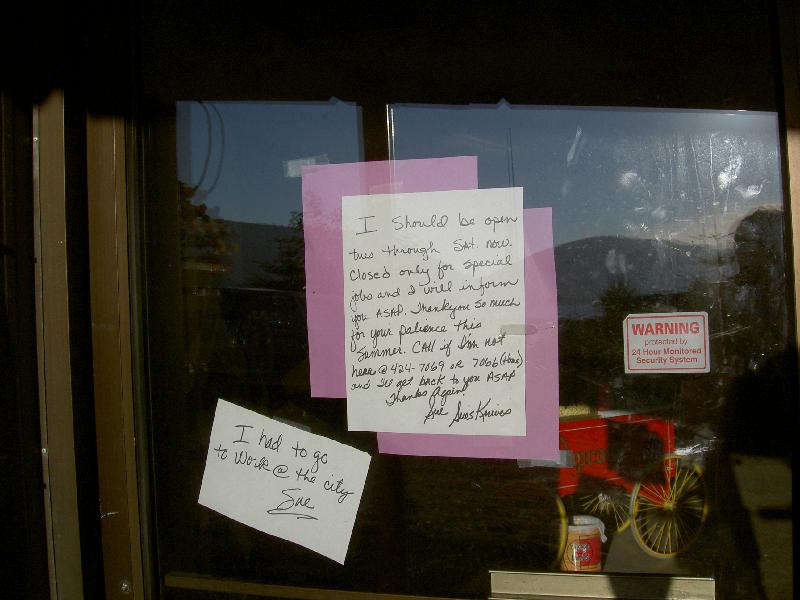 I should be open
tues through Sat. now.
Closed only for special
jobs and I will inform
you ASAP. Thankyou so much
for your patience this
Summer. CAll if I'm not
here @ 424-7069 or 7066
and I'll get back to you ASAP
Thanks Again!
Sue Sues Knives
I had to go
to work @ the city
Sue
WARNING
protected by
24 Hour Monitored
Security System